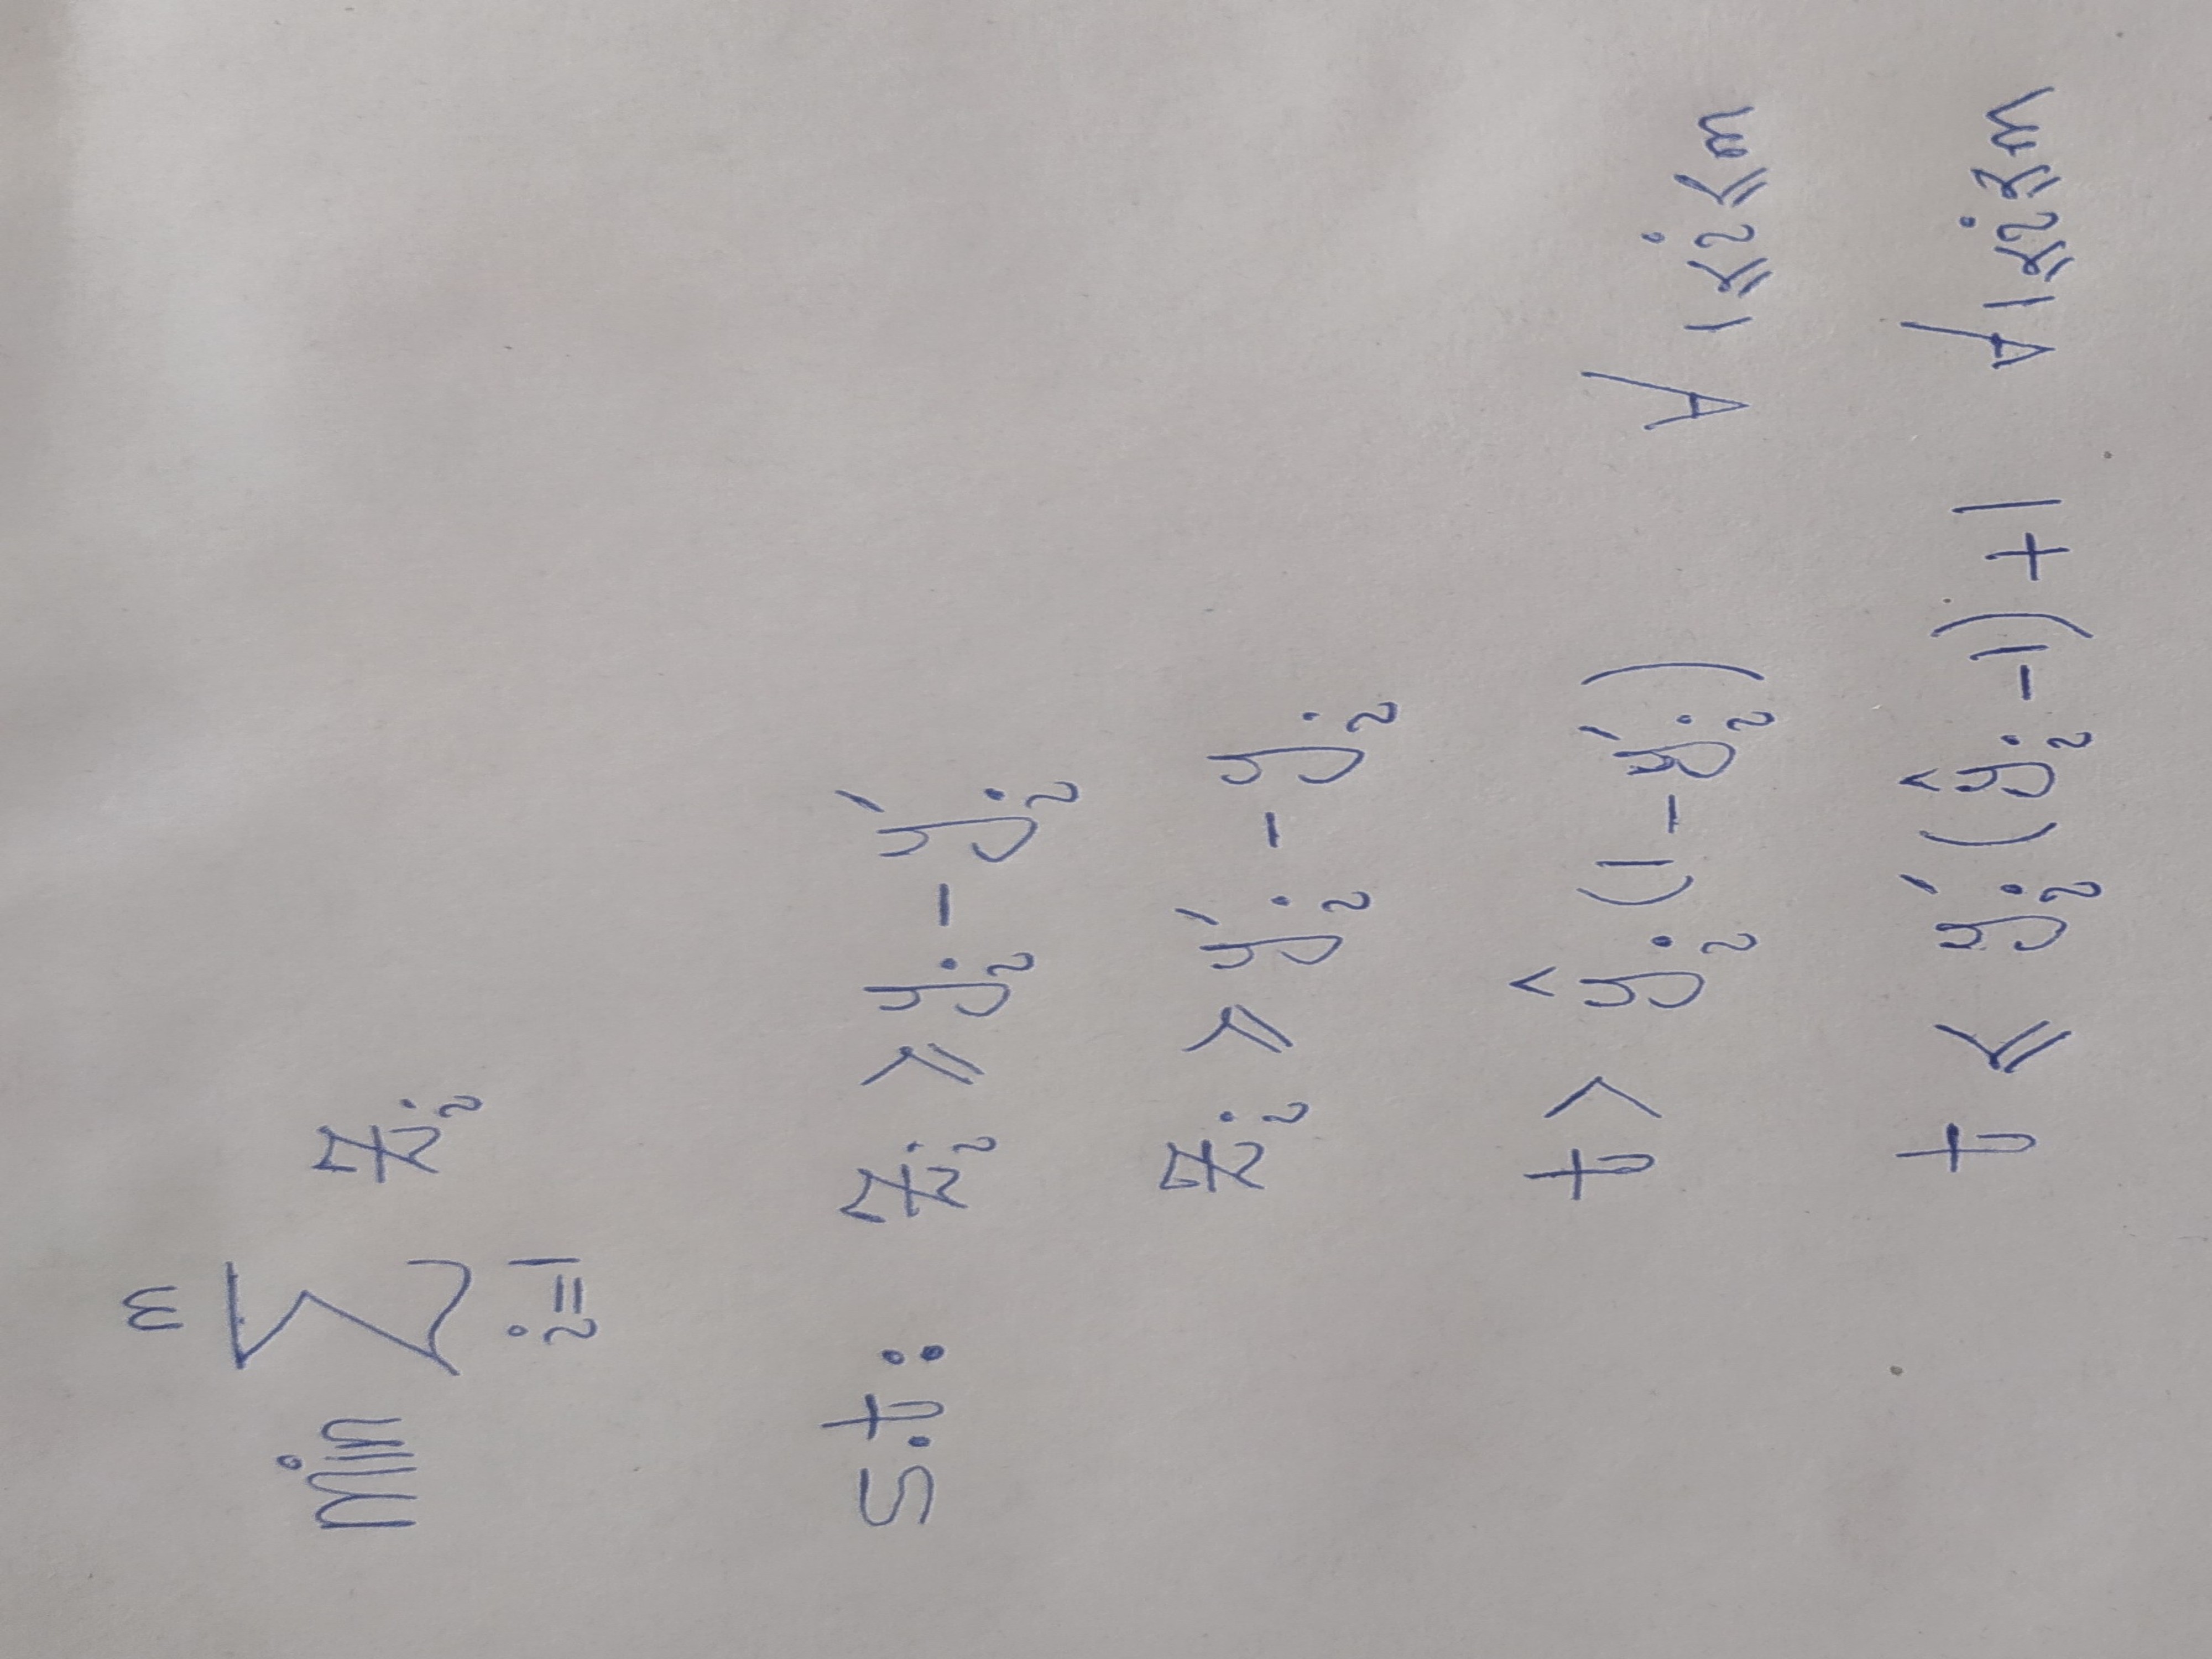 min ∑_{i=1}^{m} z_i
s.t: z_i ⩾ y_i - y'_i
z_i ⩾ y'_i - y_i
t > ŷ_i (1 - y'_i) ∀ 1⩽i⩽m
t ⩽ y'_i (ŷ_i - 1) + 1 ∀ 1⩽i⩽m